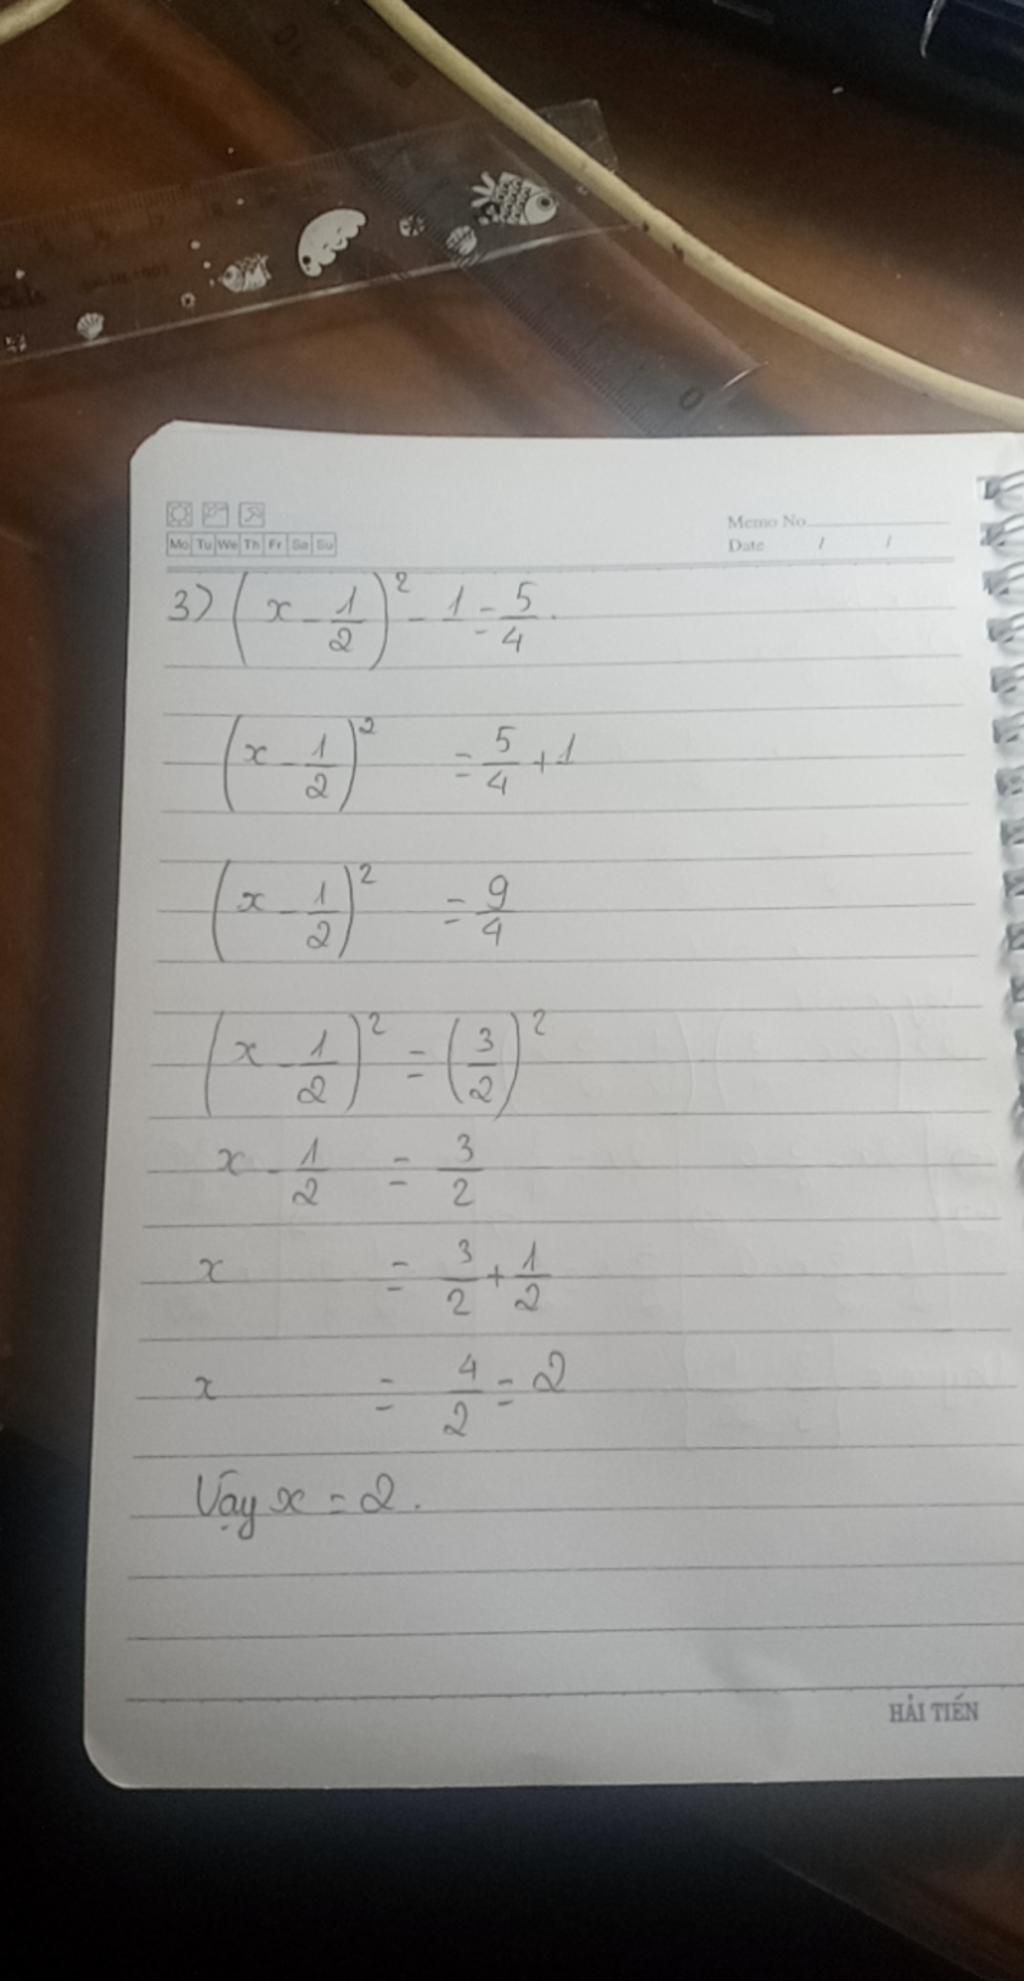 Mo Tu We Th Fr Sa Su
Memo No.
Date / /
3) (x - 1/2)² - 1 = 5/4.
(x - 1/2)² = 5/4 + 1
(x - 1/2)² = 9/4
(x - 1/2)² = (3/2)²
x - 1/2 = 3/2
x = 3/2 + 1/2
x = 4/2 = 2
Vậy x = 2.
HẢI TIẾN